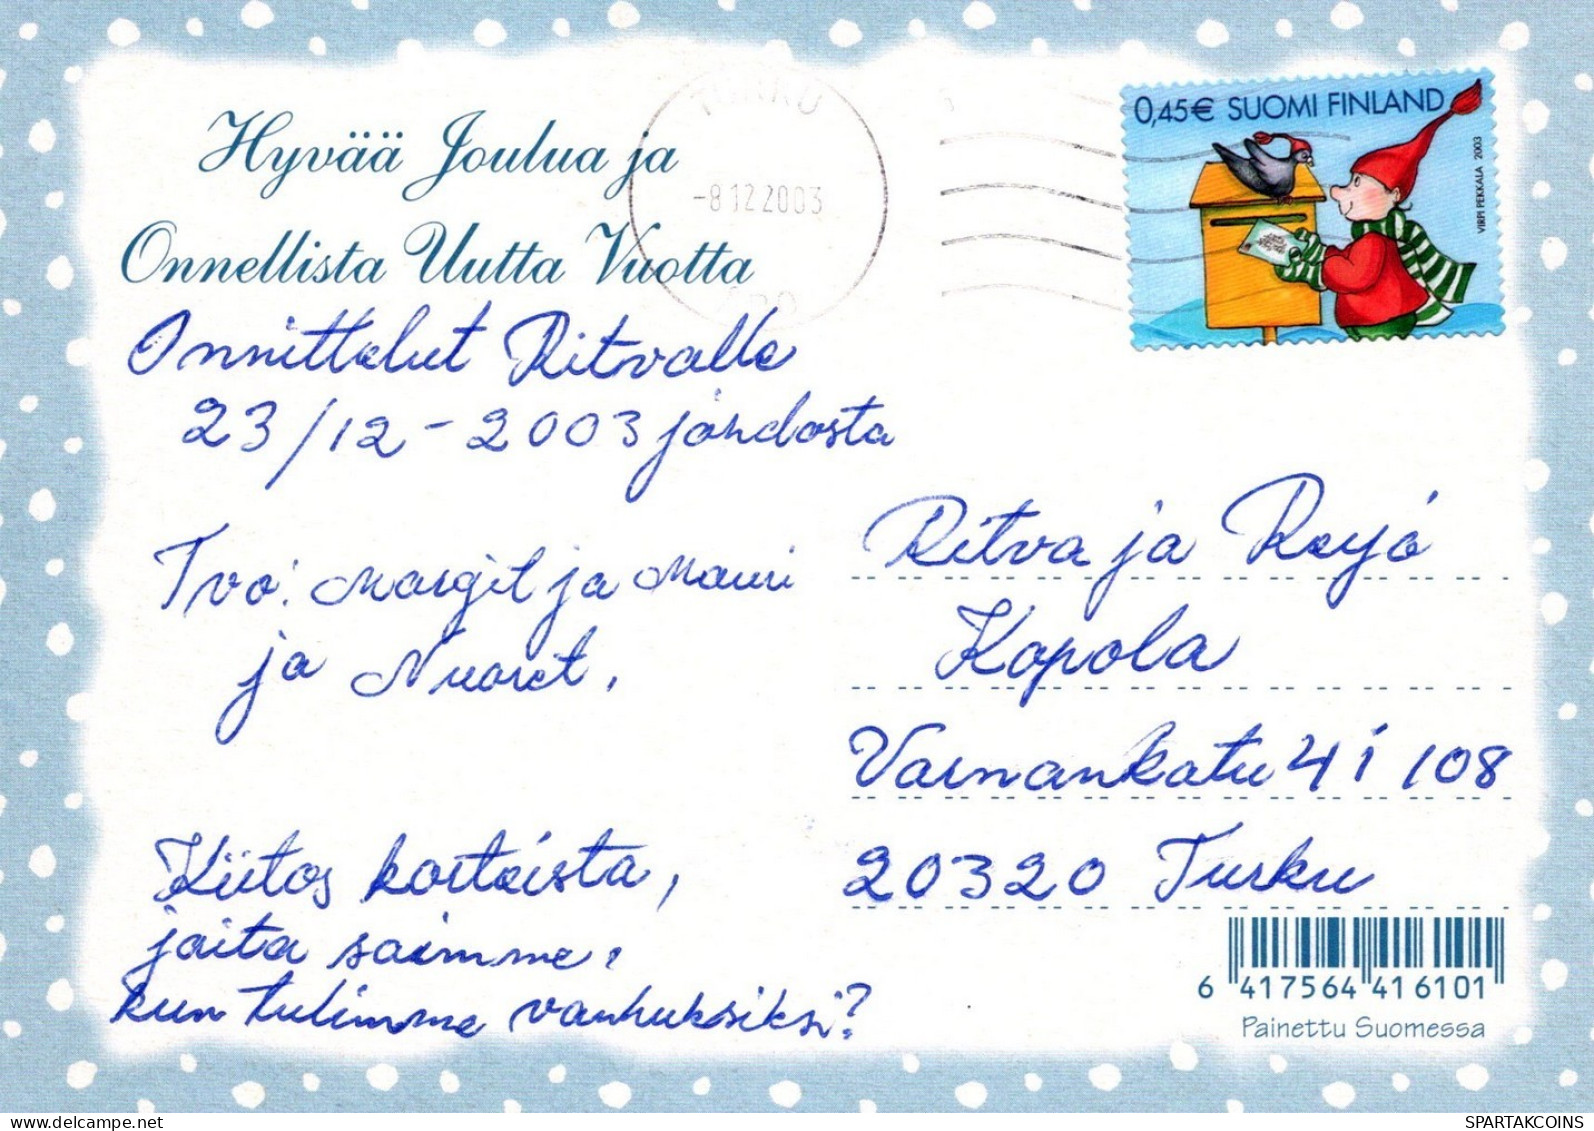 Hyvää Joulua ja
Onnellista Uutta Vuotta
TURKU
-8.12.2003
ÅBO
0,45€ SUOMI FINLAND
VIRPI PEKKALA 2003
Onnittelut Ritvalle
23/12-2003 johdosta
Tvo: Margit ja Mauri
ja Nuoret.
Kiitos korteista,
joita saimme,
kun tulimme vanhuksiksi?
Ritva ja Reijo
Kopola
Varnankatu 4 i 108
20320 Turku
6 417564 416101
Painettu Suomessa
SPARTAKCOINS